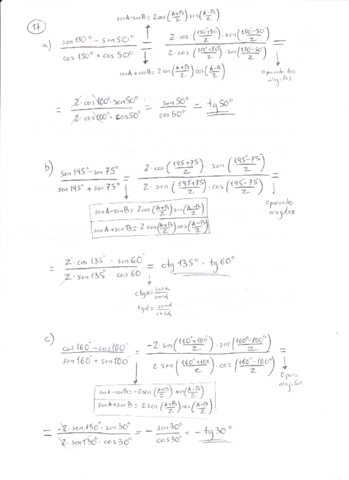 17
senA-senB = 2cos(A+B/2) sen(A-B/2)
a) sen150° - sen50° / cos150° + cos50° = 2·cos(150+50/2)·sen(150-50/2) / 2·cos(150+50/2)·cos(150-50/2) =
cosA+cosB = 2cos(A+B/2) cos(A-B/2)
operando los ángulos
= 2·cos100°·sen50° / 2·cos100°·cos50° = sen50° / cos50° = tg50°
b) sen195° - sen75° / sen195° + sen75° = 2·cos(195+75/2)·sen(195-75/2) / 2·sen(195+75/2)·cos(195-75/2) =
operando ángulos
senA-senB = 2cos(A+B/2) sen(A-B/2)
senA+senB = 2sen(A+B/2) cos(A-B/2)
= 2·cos135°·sen60° / 2·sen135°·cos60 = ctg135°·tg60°
ctgα = cosα/senα
tgα = senα/cosα
c) cos160° - cos100° / sen160° + sen100° = -2·sen(160°+100°/2)·sen(160°-100°/2) / 2 sen(160°+100°/2)·cos(160°-100°/2) =
ángulos
cosA-cosB = -2sen(A+B/2) sen(A-B/2)
senA+senB = 2sen(A+B/2) cos(A-B/2)
= -2·sen130°·sen30° / 2·sen130°·cos30° = - sen30° / cos30° = -tg30°